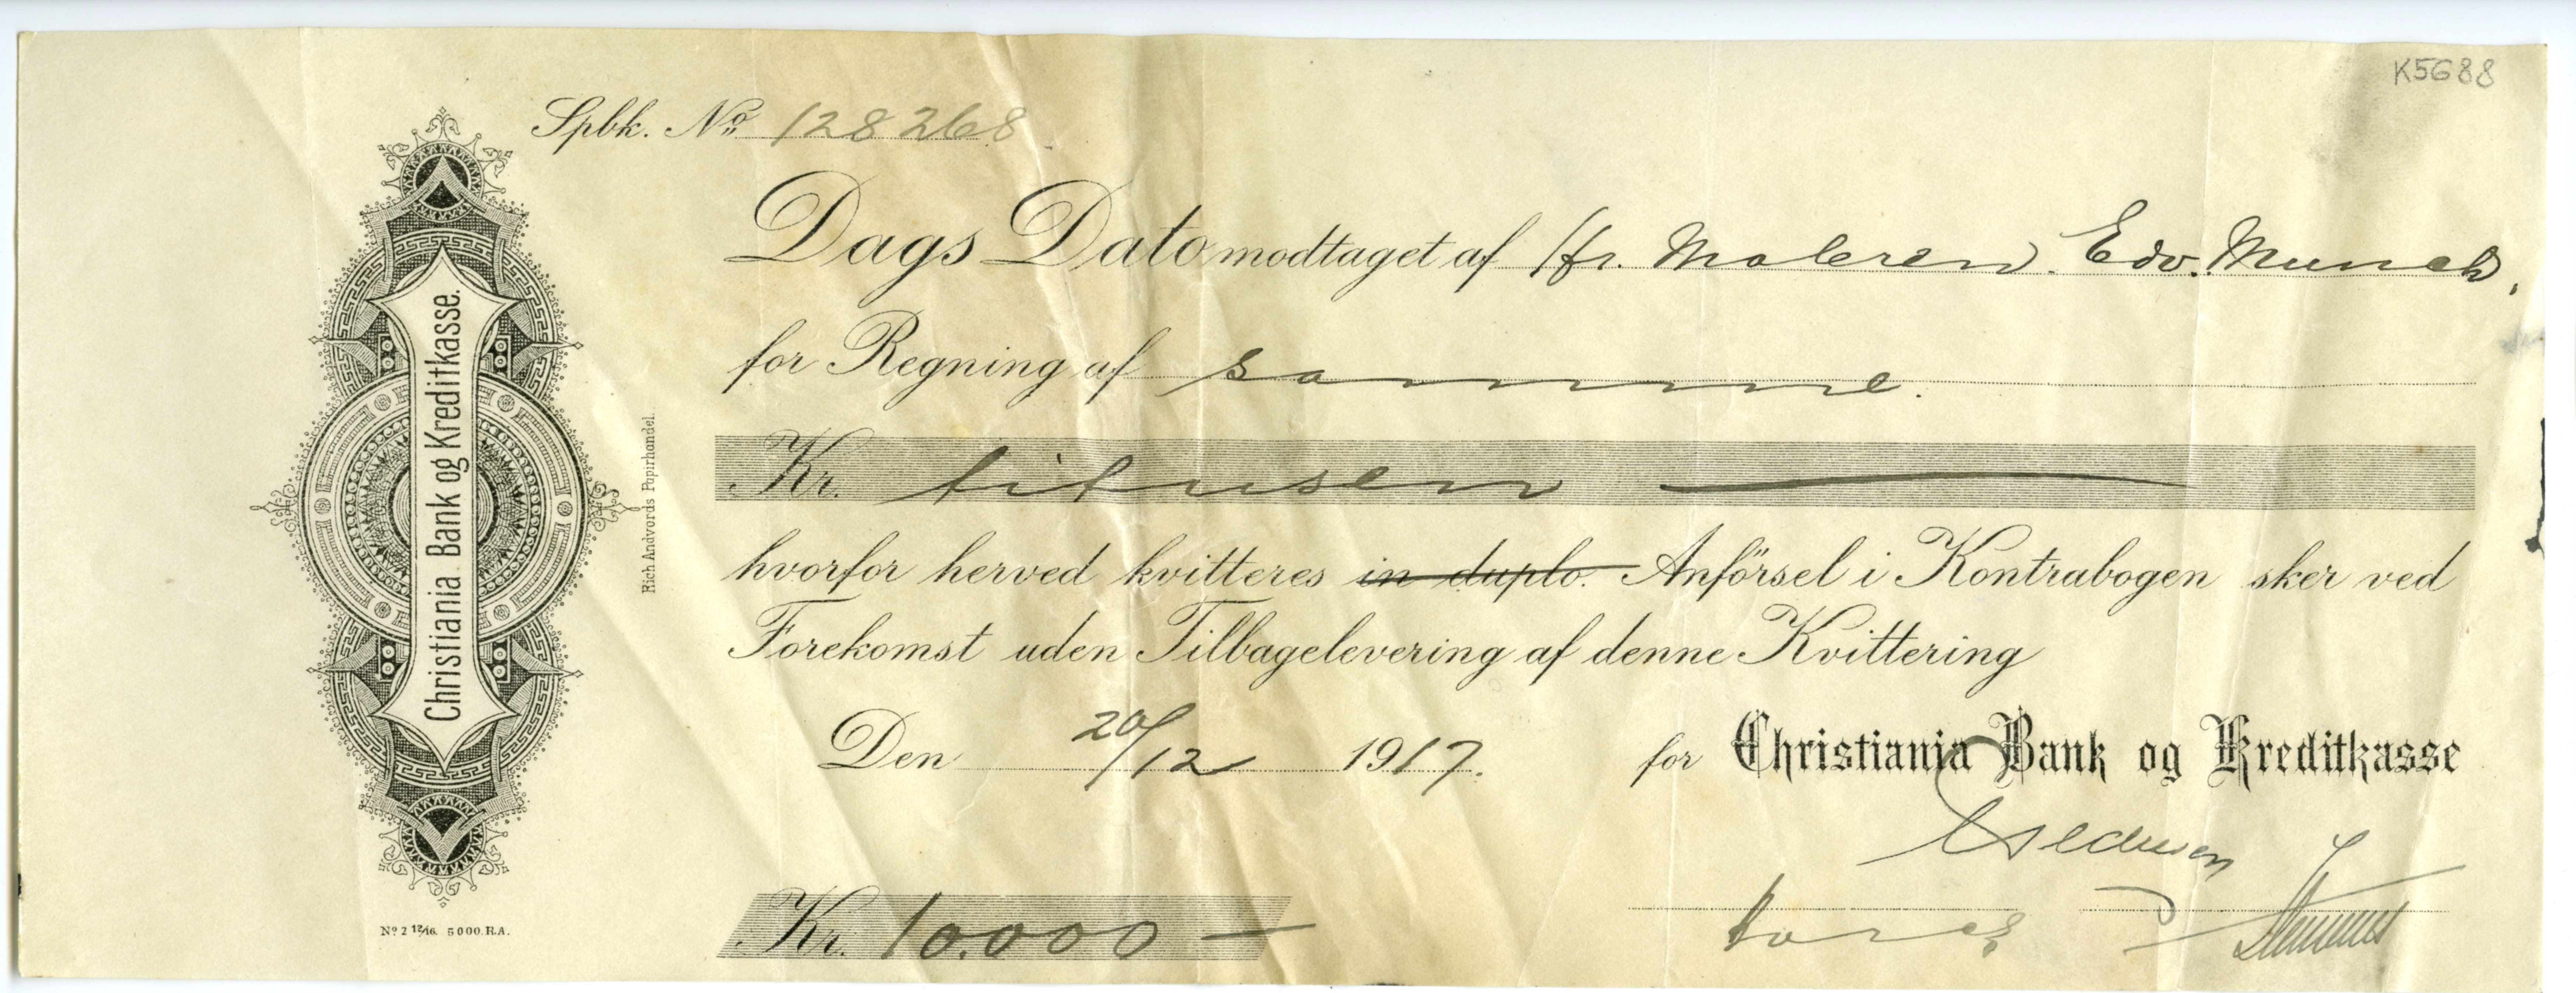 K5688
Spbk. No 128268
Dags Dato modtaget af Hr. Maleren Edv. Munch,
for Regning af samme.
Kr. titusen
hvorfor herved kvitteres in duplo. Anförsel i Kontrabogen sker ved
Forekomst uden Tilbagelevering af denne Kvittering
Den 20/12 1917. for Christiania Bank og Kreditkasse
Kr. 10.000 —
Christiania Bank og Kreditkasse.
Rich Andvords Papirhandel.
No 2 12/16. 5000. R.A.